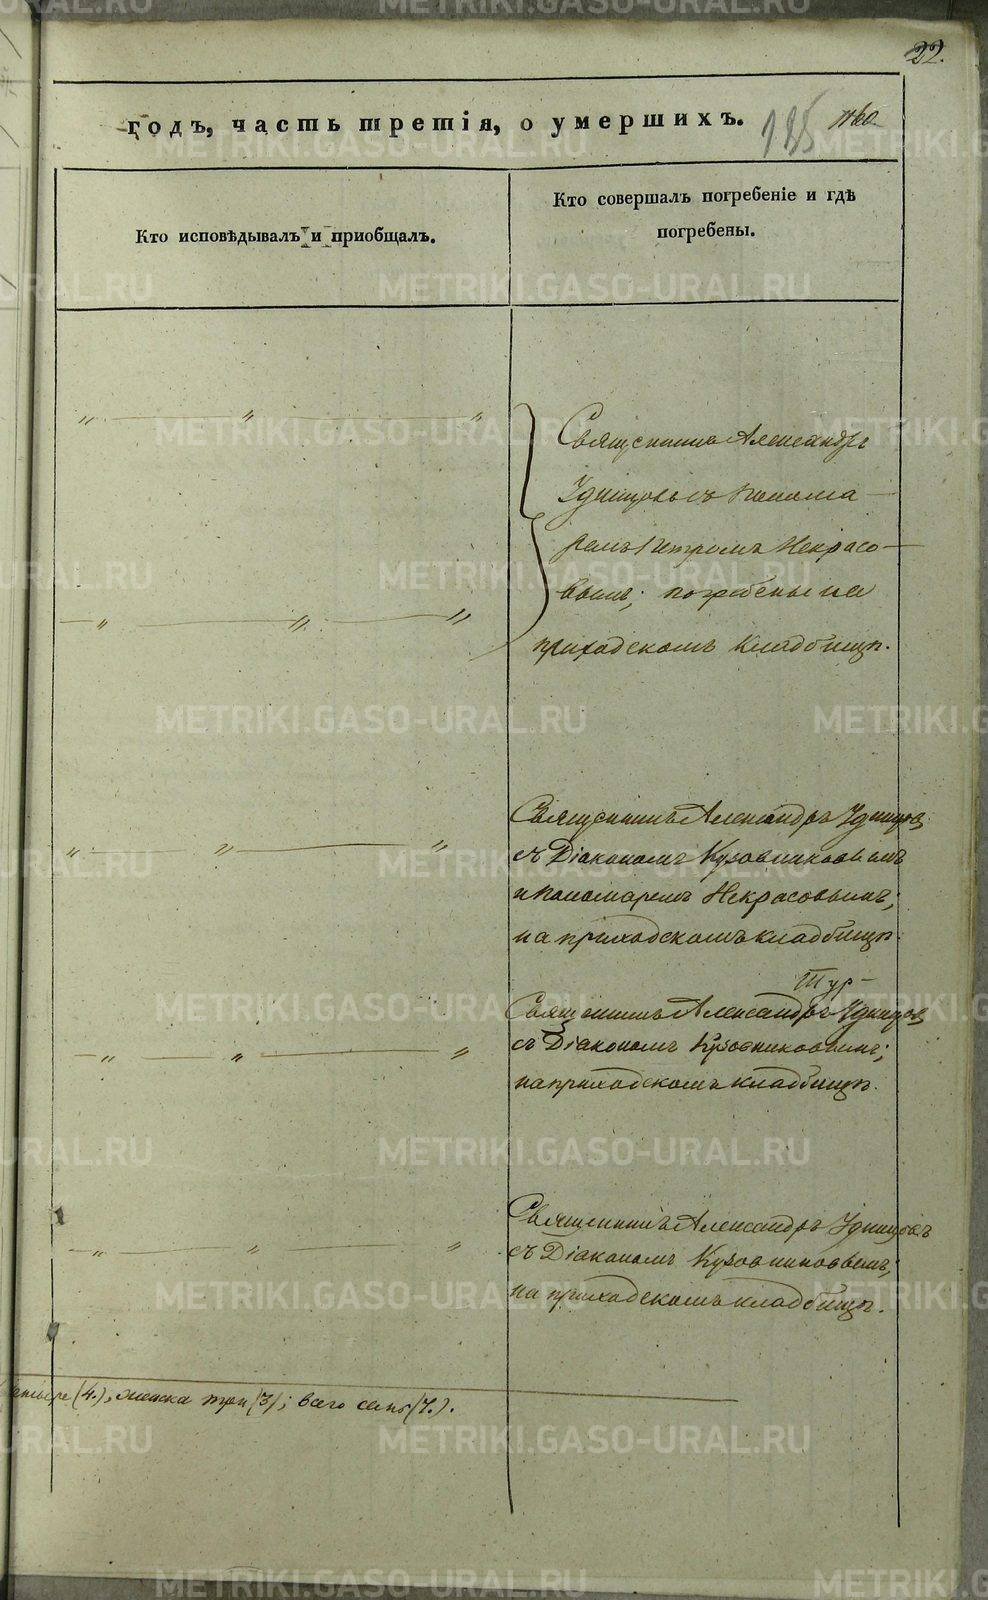 22.
годъ, часть третія, о умершихъ.
185
1160.
Кто исповѣдывалъ и приобщалъ.
Кто совершалъ погребеніе и гдѣ
погребены.
Священникъ Александръ
Удинцовъ съ Понома-
ремъ Петромъ Некрасо-
вымъ; погребены на
приходскомъ кладбищѣ.
Священникъ Александръ Удинцов
съ Діакономъ Кузовниковымъ
и Пономаремъ Некрасовымъ;
на приходскомъ кладбищѣ.
Священникъ Александръ Удинцов
съ Діакономъ Кузовниковымъ;
на приходскомъ кладбищѣ.
Священникъ Александръ Удинцовъ
съ Діакономъ Кузовниковымъ;
на приходскомъ кладбищѣ.
(4.), женска три (3); всего семь (7.).
METRIKI.GASO-URAL.RU